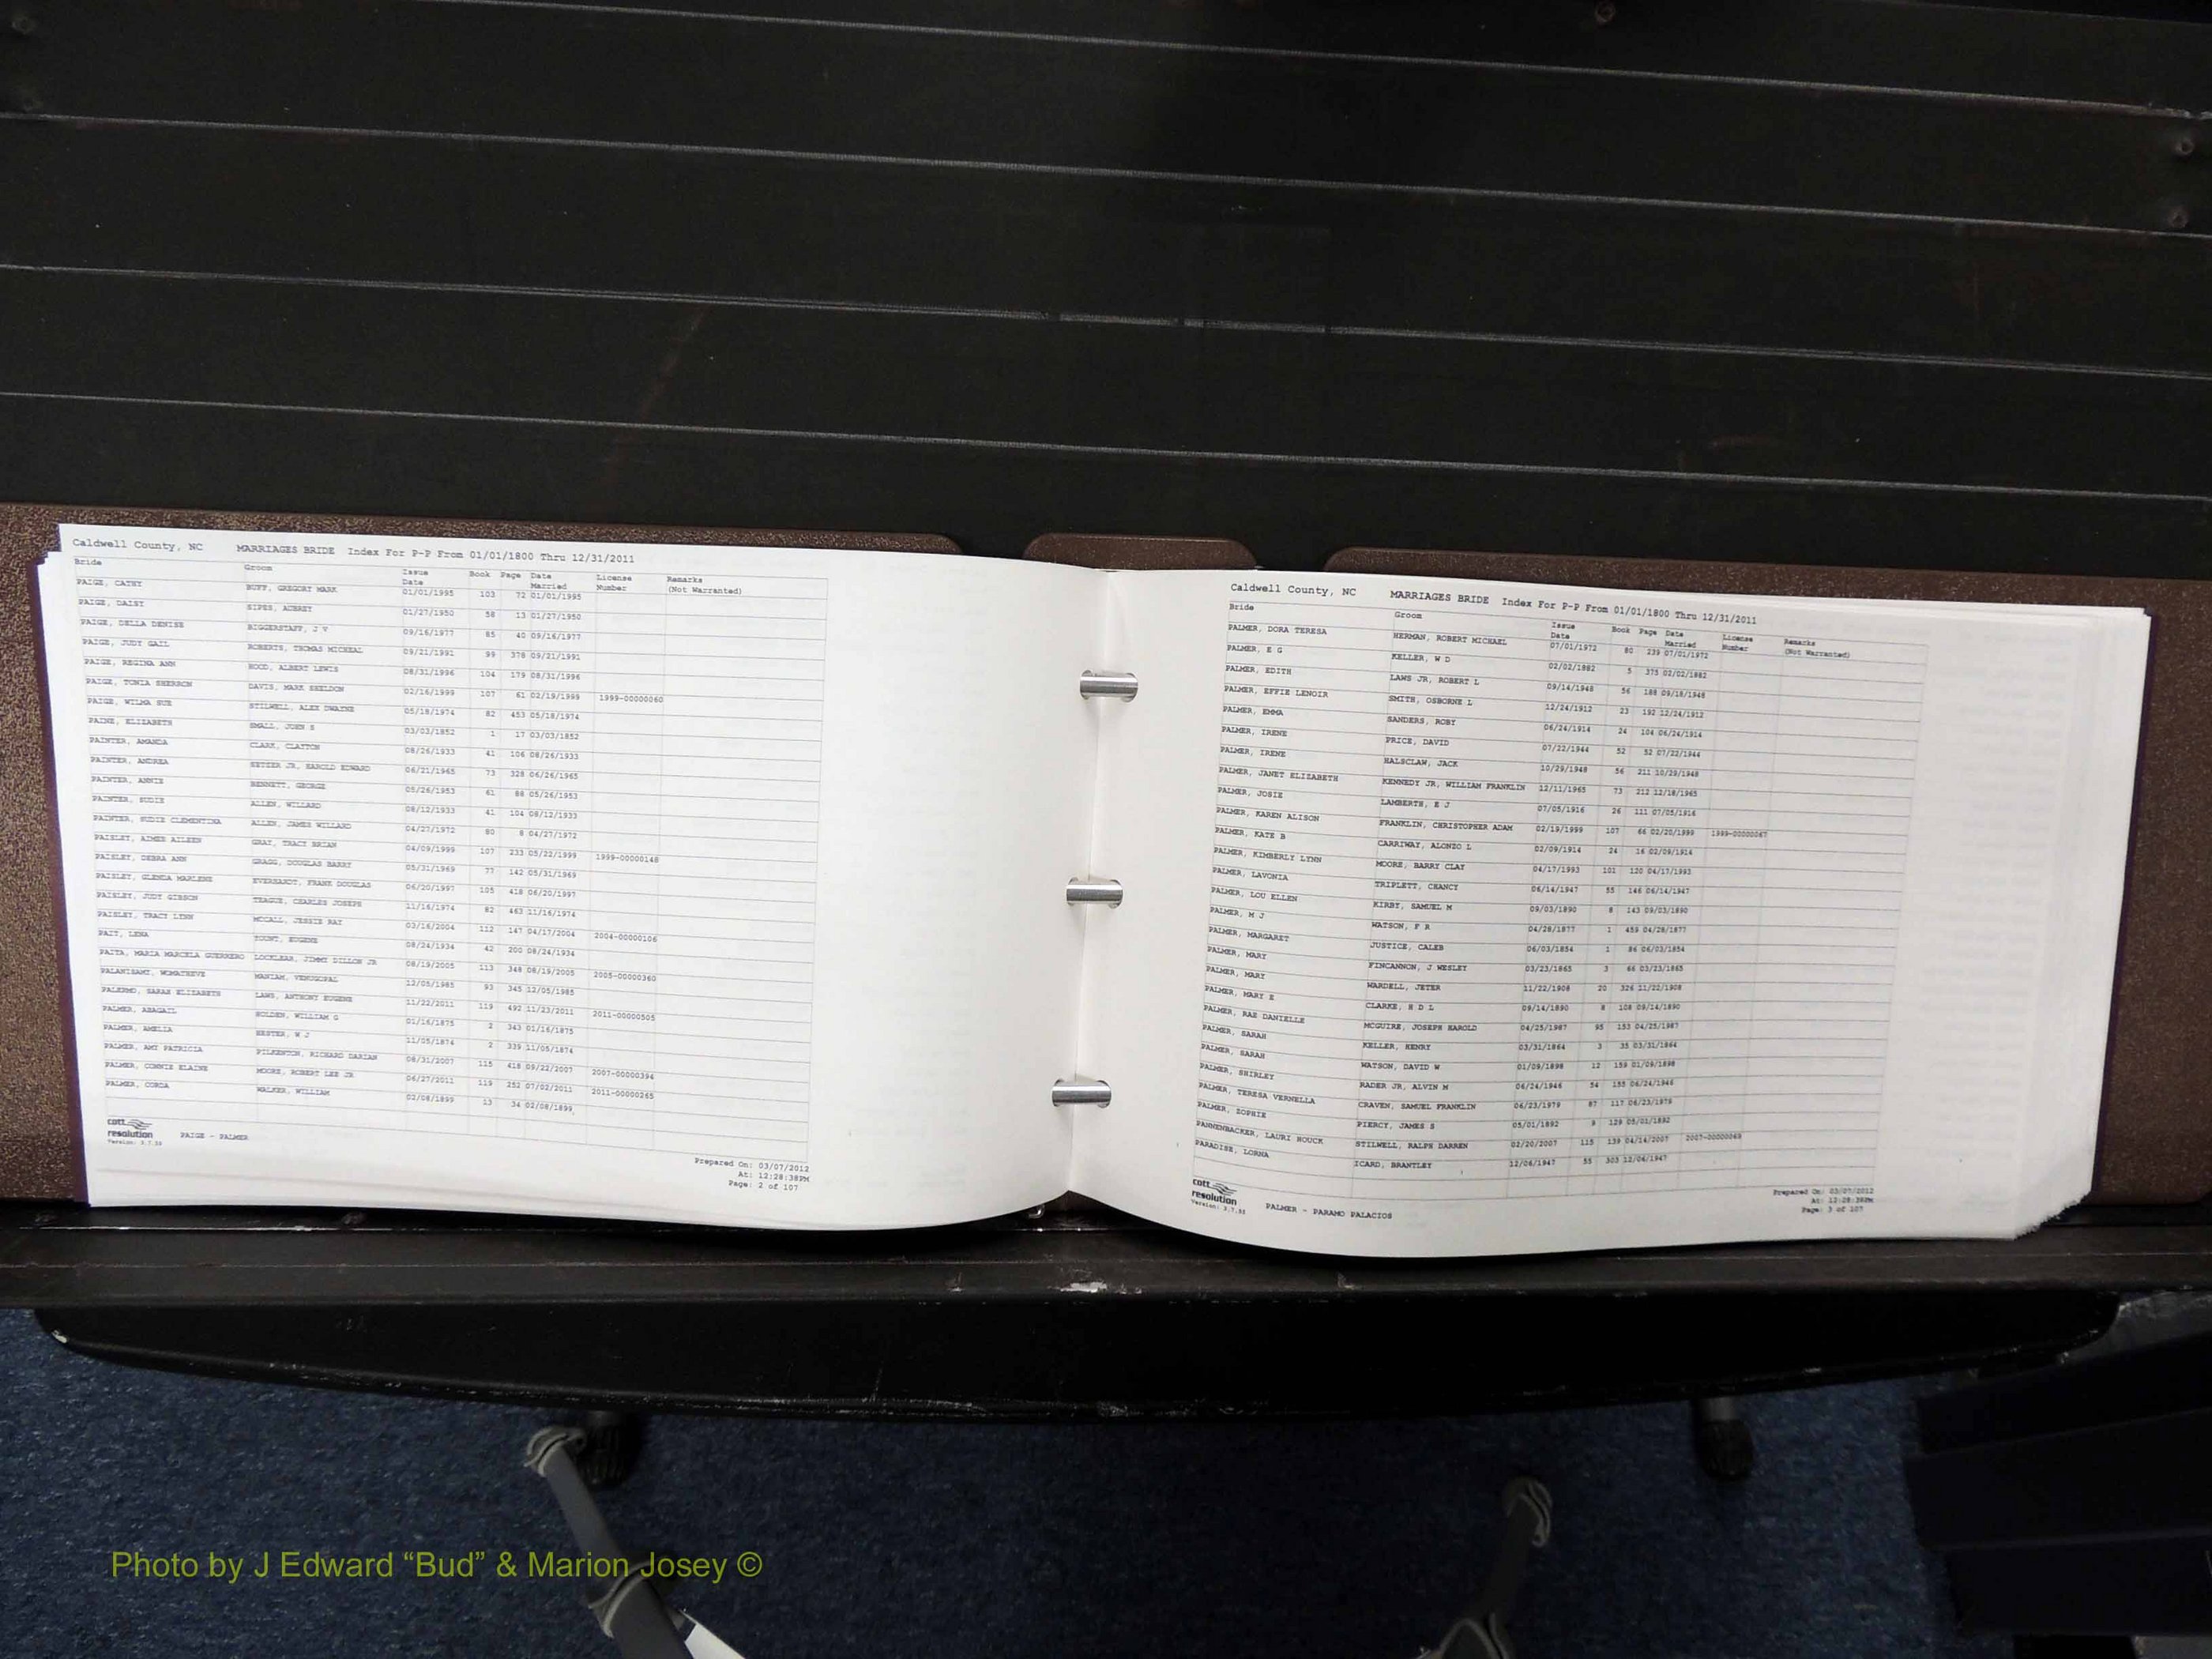 Caldwell County, NC MARRIAGES BRIDE Index For P-P From 01/01/1800 Thru 12/31/2011
Bride Groom Issue Date Book Page Date Married License Number Remarks (Not Warranted)
PAIGE, CATHY BUFF, GREGORY MARK 01/01/1995 103 72 01/01/1995
PAIGE, DAISY SIPES, AUBREY 01/27/1950 58 13 01/27/1950
PAIGE, DELLA DENISE BIGGERSTAFF, J V 09/16/1977 85 40 09/16/1977
PAIGE, JUDY GAIL ROBERTS, THOMAS MICHEAL 09/21/1991 99 378 09/21/1991
PAIGE, REGINA ANN HOOD, ALBERT LEWIS 08/31/1996 104 179 08/31/1996
PAIGE, TONIA SHERRON DAVIS, MARK SHELDON 02/16/1999 107 61 02/19/1999 1999-00000060
PAIGE, WILMA SUE STILWELL, ALEX DWAYNE 05/18/1974 82 453 05/18/1974
PAINE, ELIZABETH SMALL, JOHN S 03/03/1852 1 17 03/03/1852
PAINTER, AMANDA CLARK, CLAYTON 08/26/1933 41 106 08/26/1933
PAINTER, ANDREA SETZER JR, HAROLD EDWARD 06/21/1965 73 328 06/26/1965
PAINTER, ANNIE BENNETT, GEORGE 05/26/1953 61 88 05/26/1953
PAINTER, SUDIE ALLEN, WILLARD 08/12/1933 41 104 08/12/1933
PAINTER, SUDIE CLEMENTINA ALLEN, JAMES WILLARD 04/27/1972 80 8 04/27/1972
PAISLEY, AIMEE AILEEN GRAY, TRACY BRIAN 04/09/1999 107 233 05/22/1999 1999-00000148
PAISLEY, DEBRA ANN GRAGG, DOUGLAS BARRY 05/31/1969 77 142 05/31/1969
PAISLEY, GLENDA MARLENE EVERHARDT, FRANK DOUGLAS 06/20/1997 105 418 06/20/1997
PAISLEY, JUDY GIBSON TEAGUE, CHARLES JOSEPH 11/16/1974 82 463 11/16/1974
PAISLEY, TRACY LYNN MCCALL, JESSIE RAY 03/16/2004 112 147 04/17/2004 2004-00000106
PAIT, LENA YOUNT, EUGENE 08/24/1934 42 200 08/24/1934
PAITA, MARIA MARCELA GUERRERO LOCKLEAR, JIMMY DILLON JR 08/19/2005 113 348 08/19/2005 2005-00000360
PALANISAMY, MANIAM, VENUGOPAL 12/05/1985 93 345 12/05/1985
PALERMO, SARAH ELIZABETH LAWS, ANTHONY EUGENE 11/22/2011 119 492 11/23/2011 2011-00000505
PALMER, ABAGAIL HOLDEN, WILLIAM G 01/16/1875 2 343 01/16/1875
PALMER, AMELIA HESTER, W J 11/05/1874 2 339 11/05/1874
PALMER, AMY PATRICIA PILKENTON, RICHARD DARIAN 08/31/2007 115 418 09/22/2007 2007-00000394
PALMER, CONNIE ELAINE MOORE, ROBERT LEE JR 06/27/2011 119 252 07/02/2011 2011-00000265
PALMER, CORDA WALKER, WILLIAM 02/08/1899 13 34 02/08/1899
cott
resolution PAIGE - PALMER
Version: 3.7.53
Prepared On: 03/07/2012
At: 12:28:38PM
Page: 2 of 107
Caldwell County, NC MARRIAGES BRIDE Index For P-P From 01/01/1800 Thru 12/31/2011
Bride Groom Issue Date Book Page Date Married License Number Remarks (Not Warranted)
PALMER, DORA TERESA HERMAN, ROBERT MICHAEL 07/01/1972 80 239 07/01/1972
PALMER, E G KELLER, W D 02/02/1882 5 375 02/02/1882
PALMER, EDITH LAWS JR, ROBERT L 09/14/1948 56 188 09/18/1948
PALMER, EFFIE LENOIR SMITH, OSBORNE L 12/24/1912 23 192 12/24/1912
PALMER, EMMA SANDERS, ROBY 06/24/1914 24 104 06/24/1914
PALMER, IRENE PRICE, DAVID 07/22/1944 52 52 07/22/1944
PALMER, IRENE HALSCLAW, JACK 10/29/1948 56 211 10/29/1948
PALMER, JANET ELIZABETH KENNEDY JR, WILLIAM FRANKLIN 12/11/1965 73 212 12/18/1965
PALMER, JOSIE LAMBERTH, E J 07/05/1916 26 111 07/05/1916
PALMER, KAREN ALISON FRANKLIN, CHRISTOPHER ADAM 02/19/1999 107 66 02/20/1999 1999-00000067
PALMER, KATE B CARRIWAY, ALONZO L 02/09/1914 24 16 02/09/1914
PALMER, KIMBERLY LYNN MOORE, BARRY CLAY 04/17/1993 101 120 04/17/1993
PALMER, LAVONIA TRIPLETT, CHANCY 06/14/1947 55 146 06/14/1947
PALMER, LOU ELLEN KIRBY, SAMUEL M 09/03/1890 8 143 09/03/1890
PALMER, M J WATSON, F R 04/28/1877 1 459 04/28/1877
PALMER, MARGARET JUSTICE, CALEB 06/03/1854 1 86 06/03/1854
PALMER, MARY FINCANNON, J WESLEY 03/23/1865 3 66 03/23/1865
PALMER, MARY WARDELL, JETER 11/22/1908 20 326 11/22/1908
PALMER, MARY E CLARKE, H D L 09/14/1890 8 108 09/14/1890
PALMER, RAE DANIELLE MCGUIRE, JOSEPH HAROLD 04/25/1987 95 153 04/25/1987
PALMER, SARAH KELLER, HENRY 03/31/1864 3 35 03/31/1864
PALMER, SARAH WATSON, DAVID W 01/09/1898 12 159 01/09/1898
PALMER, SHIRLEY RADER JR, ALVIN M 06/24/1946 54 155 06/24/1946
PALMER, TERESA VERNELLA CRAVEN, SAMUEL FRANKLIN 06/23/1979 87 117 06/23/1979
PALMER, ZOPHIE PIERCY, JAMES S 05/01/1892 9 129 05/01/1892
PANNENBACKER, LAURI HOUCK STILWELL, RALPH DARREN 02/20/2007 115 139 04/14/2007 2007-00000069
PARADISE, LORNA ICARD, BRANTLEY 12/06/1947 55 303 12/06/1947
cott
resolution PALMER - PARAMO PALACIOS
Version: 3.7.53
Prepared On: 03/07/2012
At: 12:28:38PM
Page: 3 of 107
Photo by J Edward “Bud” & Marion Josey ©